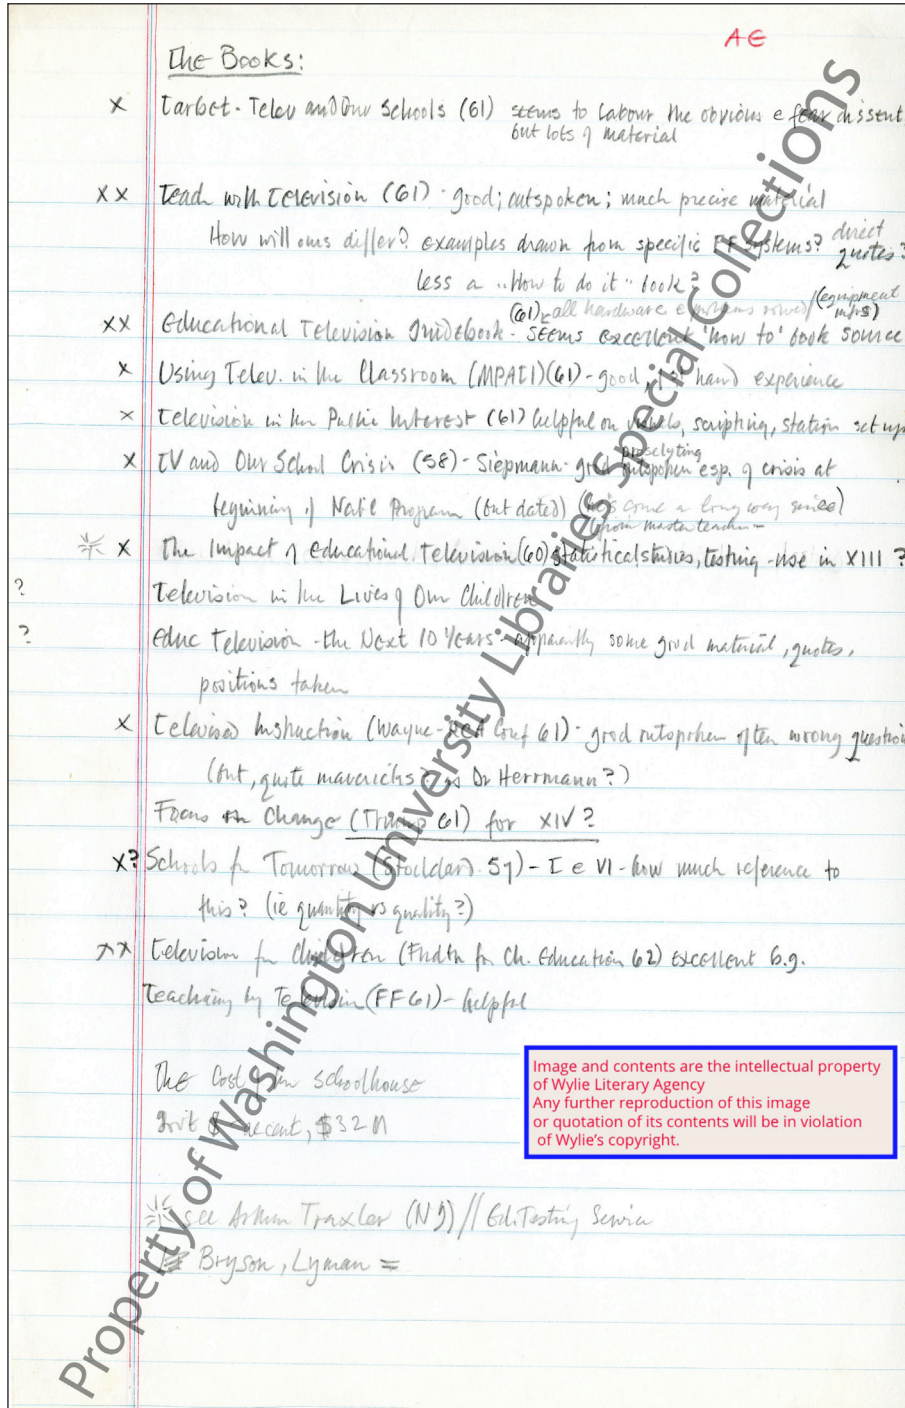 AE
The Books:
X Tarbet - Telev and Our Schools (61) seems to labour the obvious e fear dissent
but lots of material
XX Teach with Television (61) - good; outspoken; much precise material
How will ours differ? examples drawn from specific FF systems? direct quotes?
less a "How to do it" book?
(61) all hardware e problems (equipment mfrs)
XX Educational Television Guidebook - seems excellent 'how to' book source
X Using Telev. in the Classroom (MPATI) (61) - good, 1st hand experience
X Television in the Public Interest (61) helpful on visuals, scripting, station set ups
proselyting
X TV and Our School Crisis (58) - Siepmann - good outspoken esp. of crisis at
beginning of Nat'l Program (but dated) (he's come a long way since)
from master teacher -
X The Impact of Educational Television (60) statistical studies, testing - use in XIII?
? Television in the Lives of Our Children
? Educ Television - the Next 10 Years - apparently some good material, quotes,
positions taken
X Televised Instruction (Wayne-RCA Conf 61) - good outspoken often wrong question
(but, quote mavericks? as Dr Herrmann?)
Focus on Change (Trump 61) for XIV?
X? Schools for Tomorrow (Stoddard 57) - I e VI - how much reference to
this? (ie quantity vs quality?)
XX Television for Children (Fndtn for Ch. Education 62) excellent b.g.
Teaching by Television (FF 61) - helpful
The Cost of the Schoolhouse
Gov't $ recent, $32 M
see Arthur Traxler (NY) // Ed. Testing Service
Bryson, Lyman =
Image and contents are the intellectual property
of Wylie Literary Agency
Any further reproduction of this image
or quotation of its contents will be in violation
of Wylie's copyright.
Property of Washington University Libraries Special Collections